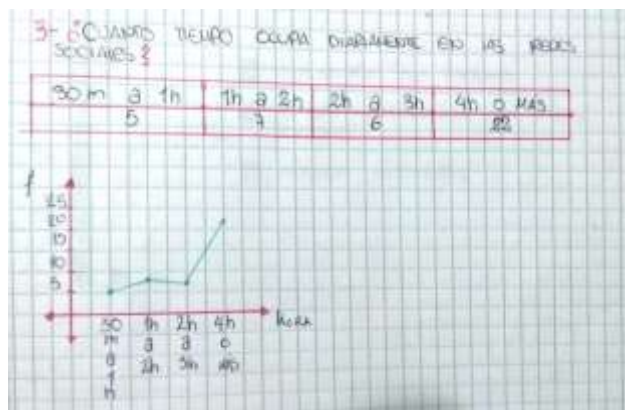 3- ¿CUANTO TIEMPO OCUPA DIARIAMENTE EN LAS REDES
SOCIALES?
30 m a 1h 1h a 2h 2h a 3h 4h o MÁS
5 7 6 22
f
25
20
15
10
5
30 1h 2h 4h hora
m a a o
a 2h 3h
1
h